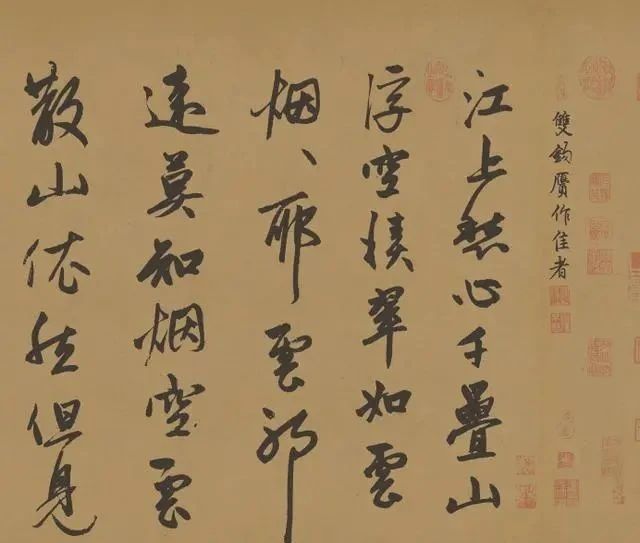 雙鈎贋作佳者
江上愁心千疊山
浮空積翠如雲
烟、耶雲耶
遠莫知烟空雲
散山依然但見